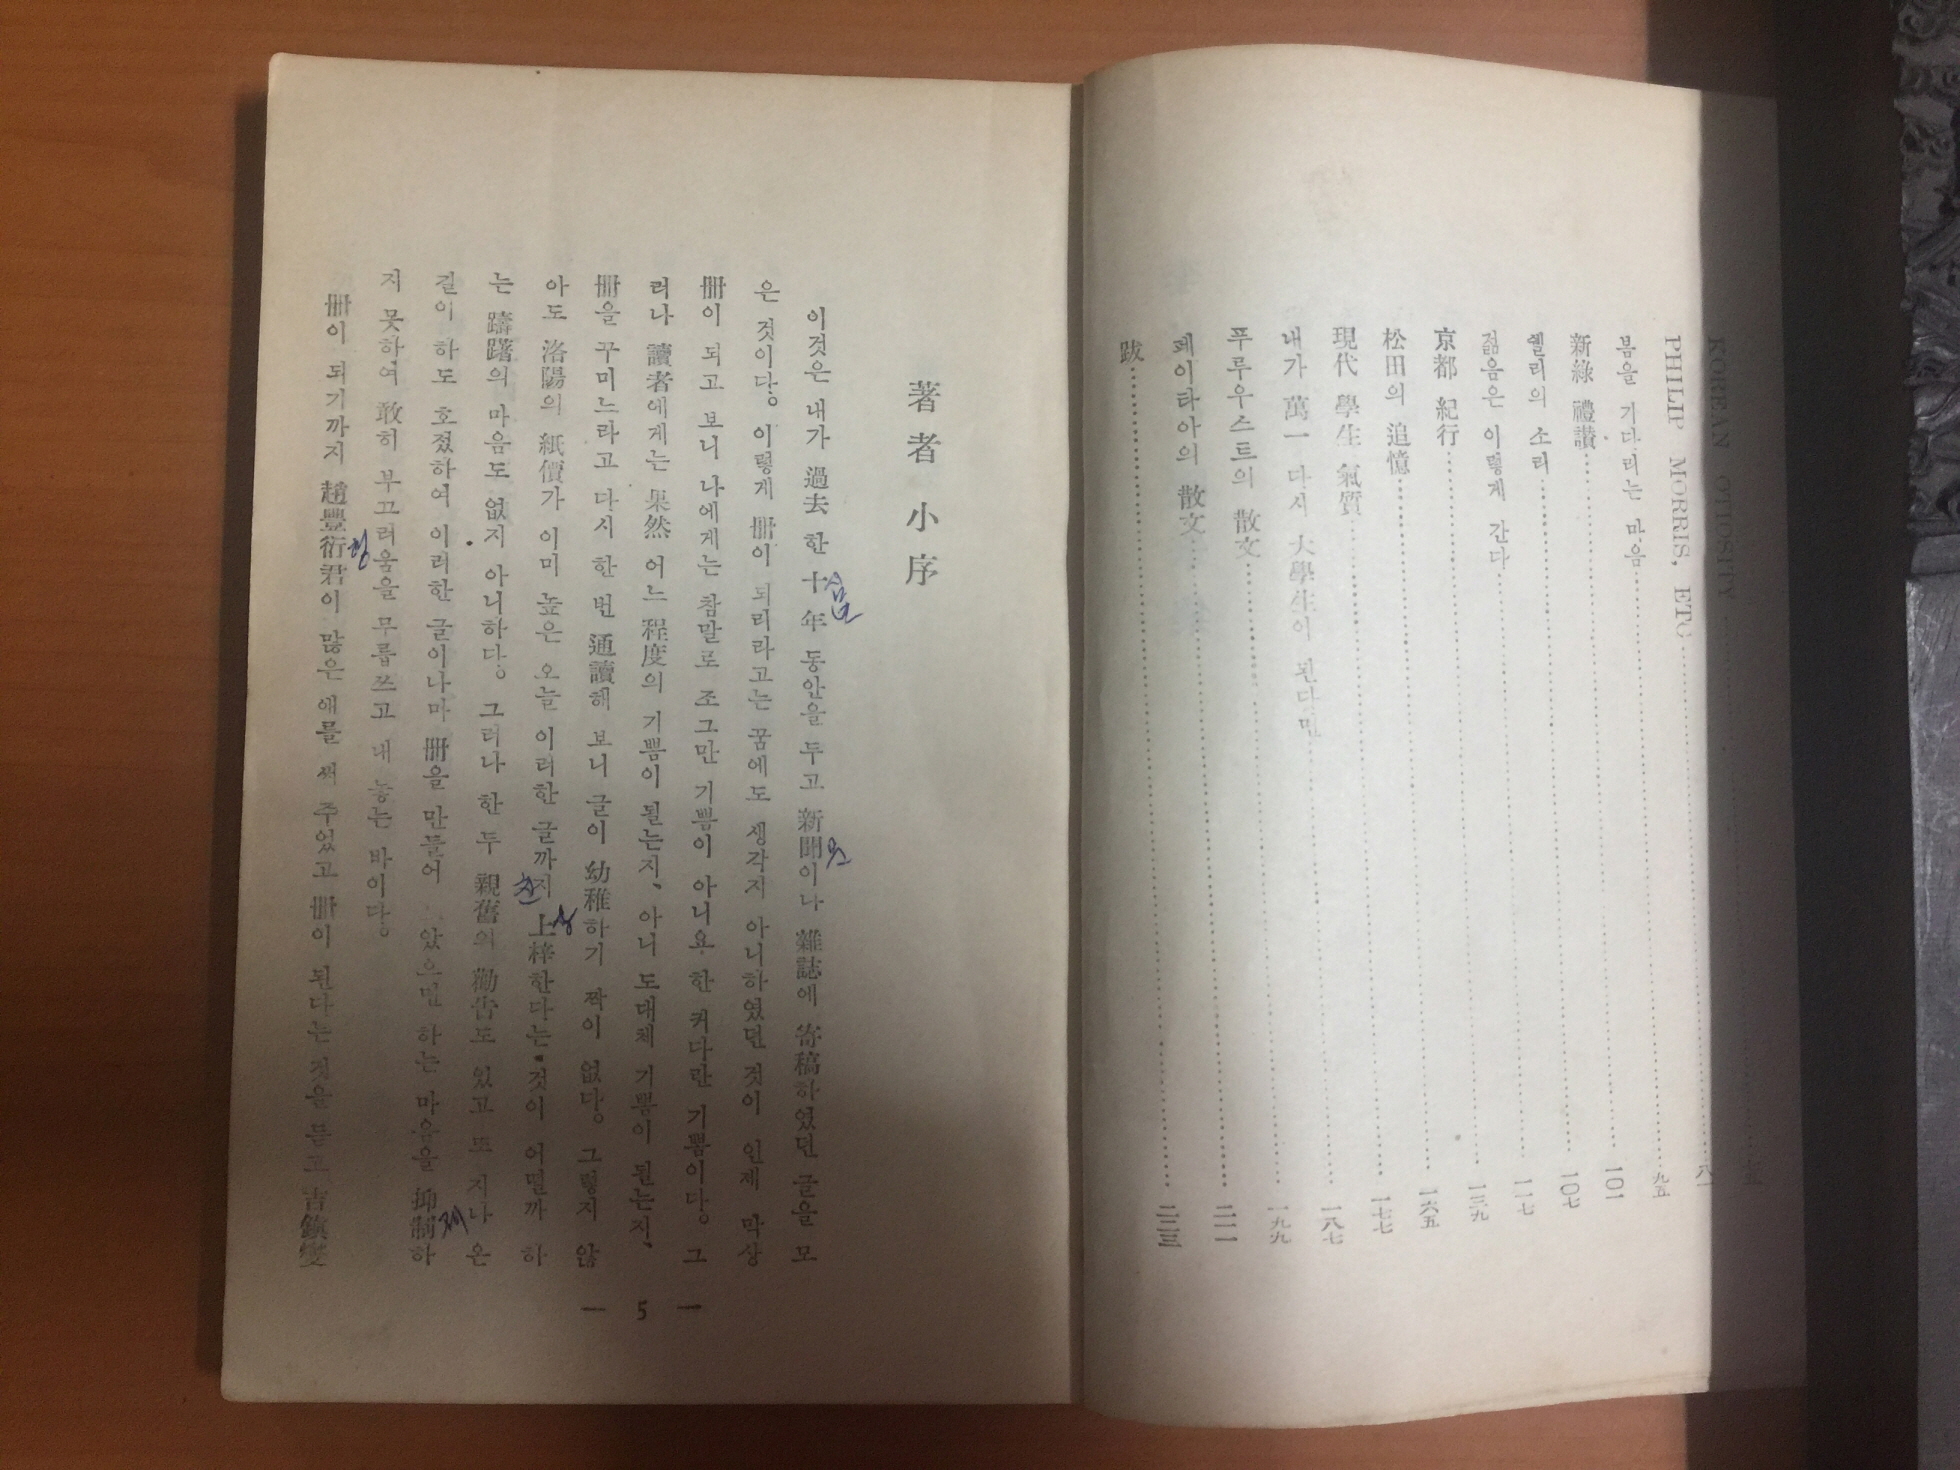 KOREAN CIDSITY
PHILIP MORRIS, ETC 八一
봄을 기다리는 마음 九五
新綠 禮讚 一〇一
쉘리의 소리 一〇七
젊음은 이렇게 간다 一一七
京都 紀行 一三九
松田의 追憶 一六五
現代 學生 氣質 一七七
내가 萬一 다시 大學生이 된다면 一八七
푸루우스트의 散文 一九九
페이타아의 散文 二一一
跋 二二三
著者 小序
이것은 내가 過去 한 十年 동안을 두고 新聞이나 雜誌에 寄稿하였던 글을 모
은 것이다。 이렇게 冊이 되리라고는 꿈에도 생각지 아니하였던 것이 인제 막상
冊이 되고 보니 나에게는 참말로 조그만 기쁨이 아니요 한 커다란 기쁨이다。 그
러나 讀者에게는 果然 어느 程度의 기쁨이 될는지、 아니 도대체 기쁨이 될는지、
冊을 꾸미느라고 다시 한 번 通讀해 보니 글이 幼稚하기 짝이 없다。 그렇지 않
아도 洛陽의 紙價가 이미 높은 오늘 이러한 글까지 上梓한다는 것이 어떨까 하
는 躊躇의 마음도 없지 아니하다。 그러나 한 두 親舊의 勸告도 있고 또 지나 온
길이 하도 호젔하여 이러한 글이나마 冊을 만들어 았으면 하는 마음을 抑制하
지 못하여 敢히 부끄러움을 무릅쓰고 내 놓는 바이다。
冊이 되기까지 趙豐衍君이 많은 애를 써 주었고 冊이 된다는 것을 듣고 吉鎭燮
심
문
친
상
제
형
— 5 —